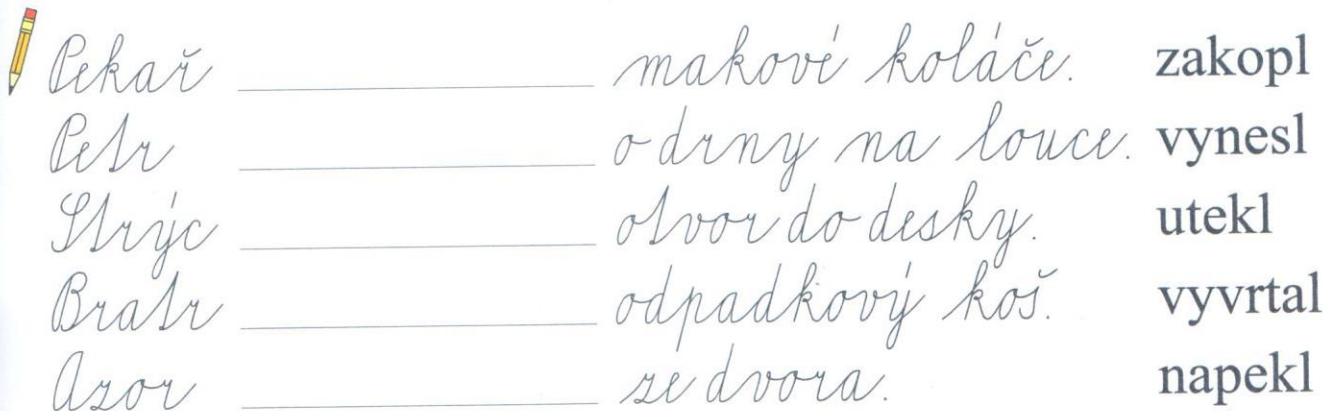 Pekař ____________ makové koláče. zakopl
Petr ____________ o drny na louce. vynesl
Strýc ____________ otvor do desky. utekl
Bratr ____________ odpadkový koš. vyvrtal
Azor ____________ ze dvora. napekl